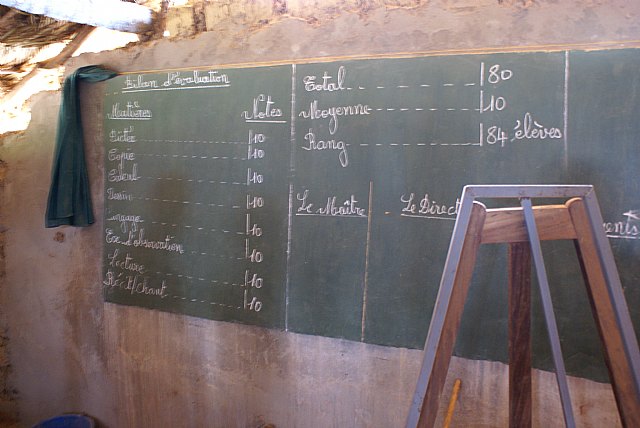 Bilan d'évaluation
Matières Notes
Dictée |10
Copie |10
Calcul |10
Dessin |10
Langage |10
Exe d'observation |10
Lecture |10
Récit/chant |10
Total |80
Moyenne |10
Rang |84 élèves
Le Maître Le Direct ents